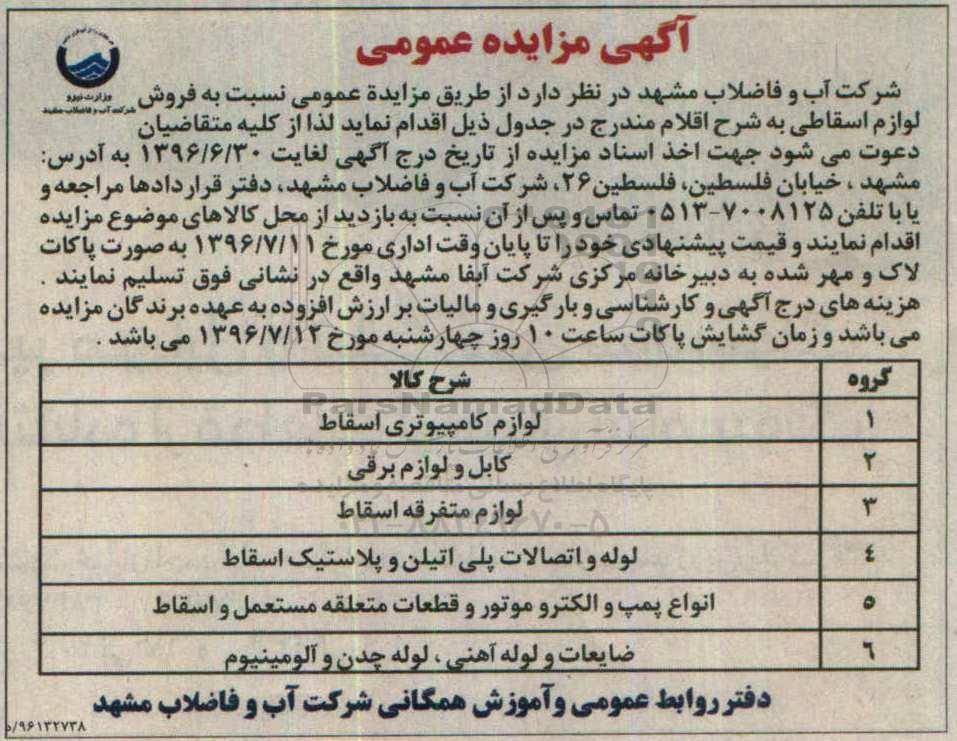 آگهی مزایده عمومی
وزارت نیرو
شرکت آب و فاضلاب مشهد
شرکت آب و فاضلاب مشهد در نظر دارد از طریق مزایدۀ عمومی نسبت به فروش
لوازم اسقاطی به شرح اقلام مندرج در جدول ذیل اقدام نماید لذا از کلیه متقاضیان
دعوت می شود جهت اخذ اسناد مزایده از تاریخ درج آگهی لغایت ۱۳۹۶/۶/۳۰ به آدرس:
مشهد ، خیابان فلسطین، فلسطین۲۶، شرکت آب و فاضلاب مشهد، دفتر قراردادها مراجعه و
یا با تلفن ۷۰۰۸۱۲۵-۰۵۱۳ تماس و پس از آن نسبت به بازدید از محل کالاهای موضوع مزایده
اقدام نمایند و قیمت پیشنهادی خود را تا پایان وقت اداری مورخ ۱۳۹۶/۷/۱۱ به صورت پاکات
لاک و مهر شده به دبیرخانه مرکزی شرکت آبفا مشهد واقع در نشانی فوق تسلیم نمایند .
هزینه های درج آگهی و کارشناسی و بارگیری و مالیات بر ارزش افزوده به عهده برندگان مزایده
می باشد و زمان گشایش پاکات ساعت ۱۰ روز چهارشنبه مورخ ۱۳۹۶/۷/۱۲ می باشد .
گروه شرح کالا
ParsNamadData
۱ لوازم کامپیوتری اسقاط
۲ کابل و لوازم برقی
۳ لوازم متفرقه اسقاط
۴ لوله و اتصالات پلی اتیلن و پلاستیک اسقاط
۵ انواع پمپ و الکترو موتور و قطعات متعلقه مستعمل و اسقاط
۶ ضایعات و لوله آهنی ، لوله چدن و آلومینیوم
دفتر روابط عمومی و آموزش همگانی شرکت آب و فاضلاب مشهد
۹۶۱۳۲۷۳۸/د